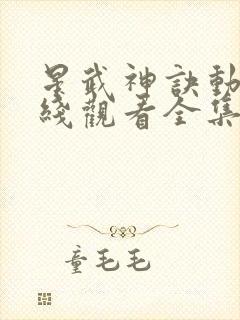 星武神訣動
綫觀看全集
童毛毛